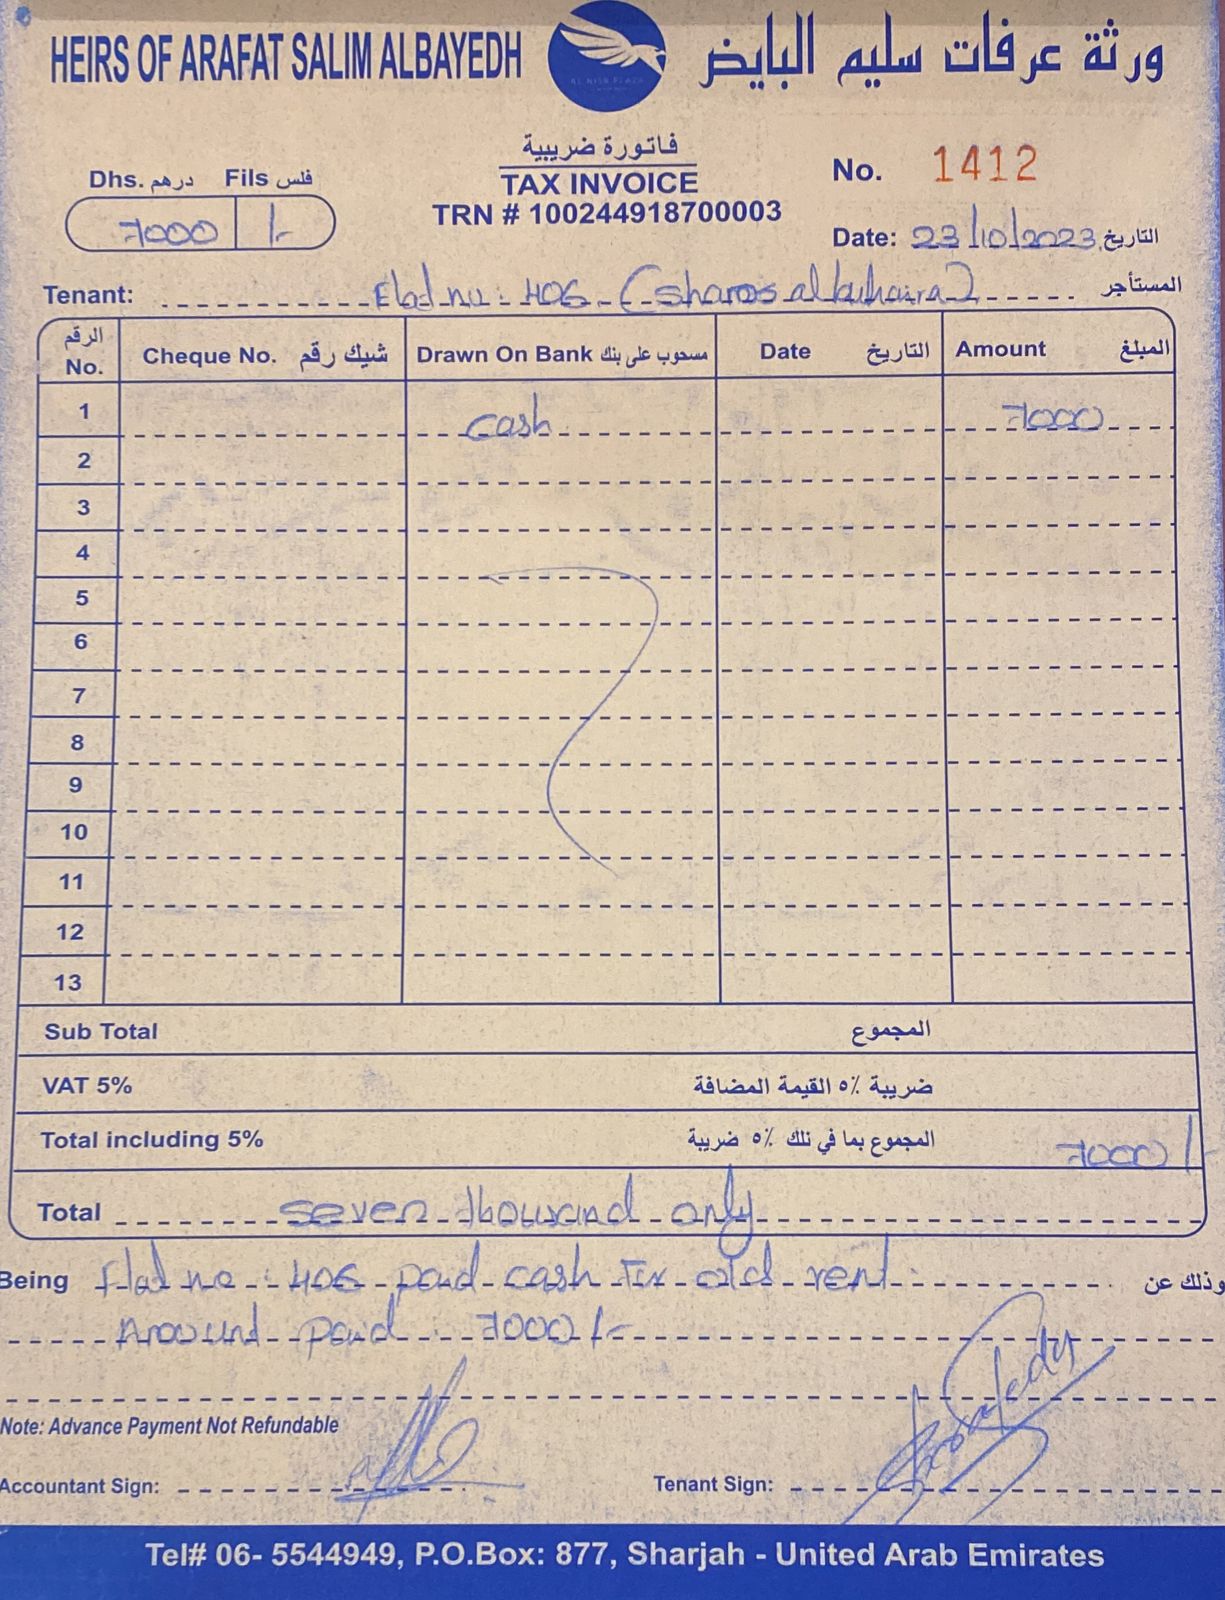 HEIRS OF ARAFAT SALIM ALBAYEDH
ورثة عرفات سليم البايض
فاتورة ضريبية
TAX INVOICE
TRN # 100244918700003
No. 1412
Dhs. درهم Fils فلس
7000 /-
Date: 23/10/2023 التاريخ
Tenant: no: 406 ( ) المستأجر
الرقم No. Cheque No. شيك رقم Drawn On Bank مسحوب على بنك Date التاريخ Amount المبلغ
1 cash 7000
2
3
4
5
6
7
8
9
10
11
12
13
Sub Total المجموع
VAT 5% ضريبة ٥٪ القيمة المضافة
Total including 5% المجموع بما في نلك ٥٪ ضريبة 7000 /-
Total seven thousand only
Being Flat no: 406 paid cash old rent. وذلك عن
Amount paid: 7000 /-
Note: Advance Payment Not Refundable
Accountant Sign:
Tenant Sign:
Tel# 06- 5544949, P.O.Box: 877, Sharjah - United Arab Emirates